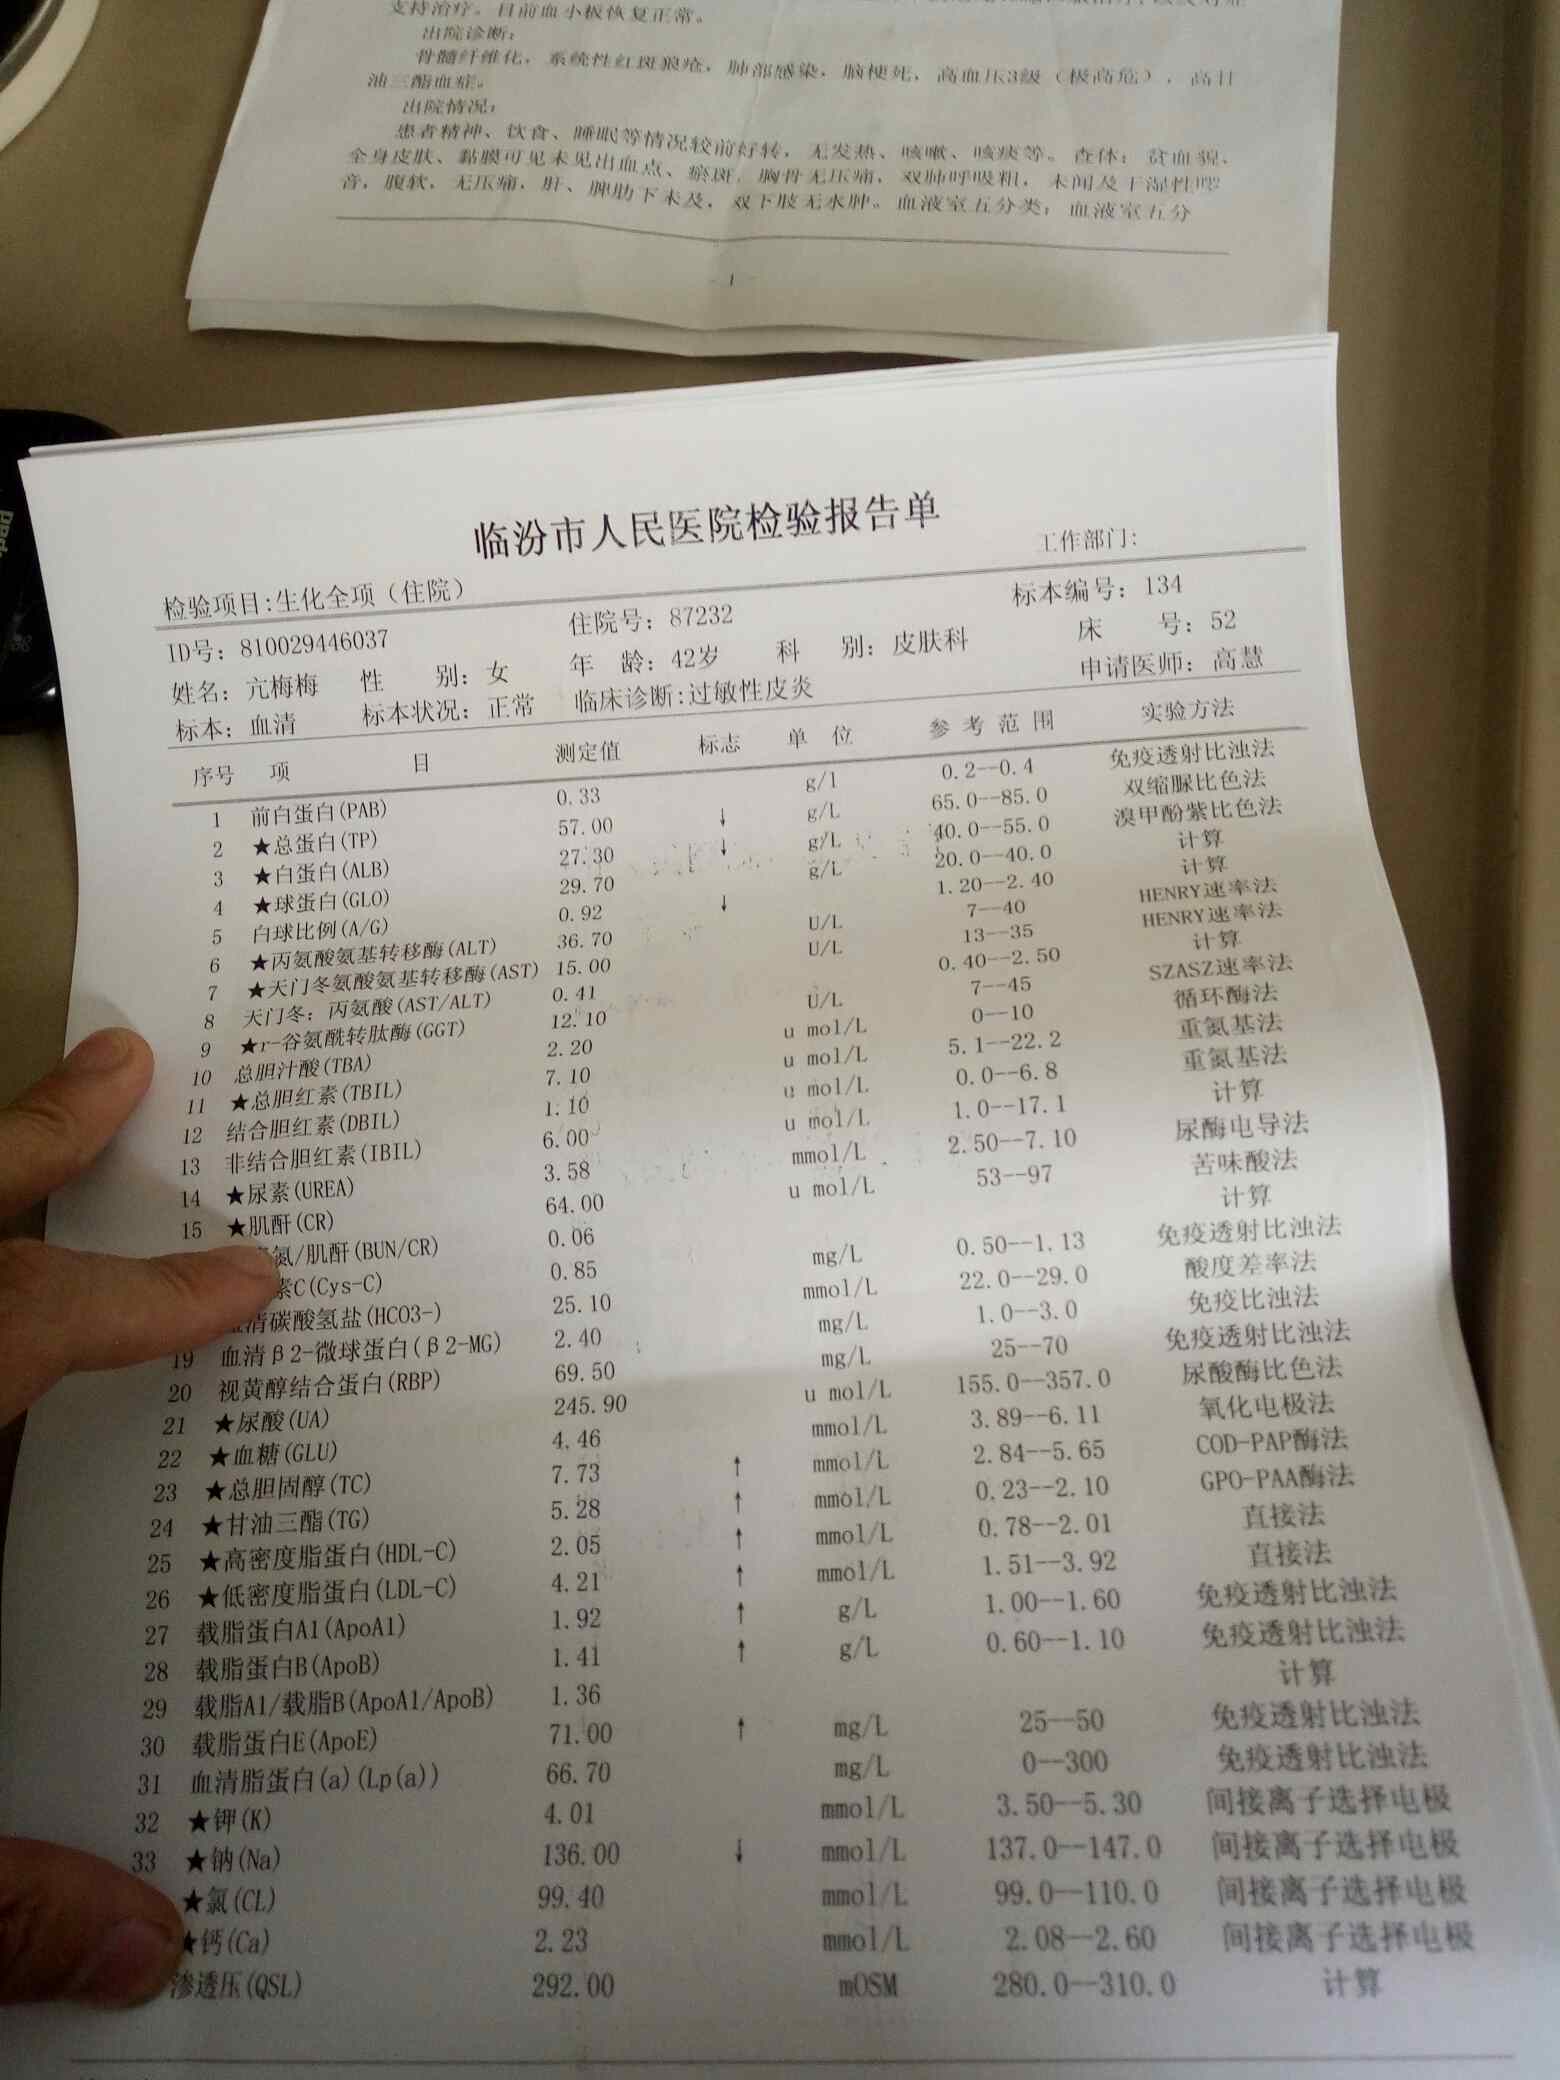 支持治疗。目前血小板恢复正常。
出院诊断：
骨髓纤维化，系统性红斑狼疮，肺部感染，脑梗死，高血压3级（极高危），高甘
油三酯血症。
出院情况：
患者精神、饮食、睡眠等情况较前好转，无发热、咳嗽、咳痰等。查体：贫血貌，
全身皮肤、黏膜可见未见出血点、瘀斑，胸骨无压痛，双肺呼吸粗，未闻及干湿性啰
音，腹软，无压痛，肝、脾肋下未及，双下肢无水肿。血液室五分类：血液室五分
1
临汾市人民医院检验报告单
检验项目:生化全项（住院） 工作部门:
ID号: 810029446037 住院号: 87232 标本编号: 134
姓名: 亢梅梅 性 别: 女 年 龄: 42岁 科 别: 皮肤科 床 号: 52
标本: 血清 标本状况: 正常 临床诊断:过敏性皮炎 申请医师: 高慧
序号 项 目 测定值 标志 单 位 参 考 范 围 实验方法
1 前白蛋白(PAB) 0.33 g/l 0.2--0.4 免疫透射比浊法
2 ★总蛋白(TP) 57.00 ↓ g/L 65.0--85.0 双缩脲比色法
3 ★白蛋白(ALB) 27.30 ↓ g/L 40.0--55.0 溴甲酚紫比色法
4 ★球蛋白(GLO) 29.70 g/L 20.0--40.0 计算
5 白球比例(A/G) 0.92 ↓ 1.20--2.40 计算
6 ★丙氨酸氨基转移酶(ALT) 36.70 U/L 7--40 HENRY速率法
7 ★天门冬氨酸氨基转移酶(AST) 15.00 U/L 13--35 HENRY速率法
8 天门冬: 丙氨酸(AST/ALT) 0.41 0.40--2.50 计算
9 ★r-谷氨酰转肽酶(GGT) 12.10 U/L 7--45 SZASZ速率法
10 总胆汁酸(TBA) 2.20 u mol/L 0--10 循环酶法
11 ★总胆红素(TBIL) 7.10 u mol/L 5.1--22.2 重氮基法
12 结合胆红素(DBIL) 1.10 u mol/L 0.0--6.8 重氮基法
13 非结合胆红素(IBIL) 6.00 u mol/L 1.0--17.1 计算
14 ★尿素(UREA) 3.58 mmol/L 2.50--7.10 尿酶电导法
15 ★肌酐(CR) 64.00 u mol/L 53--97 苦味酸法
氮/肌酐(BUN/CR) 0.06 计算
素C(Cys-C) 0.85 mg/L 0.50--1.13 免疫透射比浊法
清碳酸氢盐(HCO3-) 25.10 mmol/L 22.0--29.0 酸度差率法
19 血清β2-微球蛋白(β2-MG) 2.40 mg/L 1.0--3.0 免疫比浊法
20 视黄醇结合蛋白(RBP) 69.50 mg/L 25--70 免疫透射比浊法
21 ★尿酸(UA) 245.90 u mol/L 155.0--357.0 尿酸酶比色法
22 ★血糖(GLU) 4.46 mmol/L 3.89--6.11 氧化电极法
23 ★总胆固醇(TC) 7.73 ↑ mmol/L 2.84--5.65 COD-PAP酶法
24 ★甘油三酯(TG) 5.28 ↑ mmol/L 0.23--2.10 GPO-PAA酶法
25 ★高密度脂蛋白(HDL-C) 2.05 ↑ mmol/L 0.78--2.01 直接法
26 ★低密度脂蛋白(LDL-C) 4.21 ↑ mmol/L 1.51--3.92 直接法
27 载脂蛋白A1(ApoA1) 1.92 ↑ g/L 1.00--1.60 免疫透射比浊法
28 载脂蛋白B(ApoB) 1.41 ↑ g/L 0.60--1.10 免疫透射比浊法
29 载脂A1/载脂B(ApoA1/ApoB) 1.36 计算
30 载脂蛋白E(ApoE) 71.00 ↑ mg/L 25--50 免疫透射比浊法
31 血清脂蛋白(a)(Lp(a)) 66.70 mg/L 0--300 免疫透射比浊法
32 ★钾(K) 4.01 mmol/L 3.50--5.30 间接离子选择电极
33 ★钠(Na) 136.00 ↓ mmol/L 137.0--147.0 间接离子选择电极
★氯(CL) 99.40 mmol/L 99.0--110.0 间接离子选择电极
★钙(Ca) 2.23 mmol/L 2.08--2.60 间接离子选择电极
渗透压(QSL) 292.00 mOSM 280.0--310.0 计算